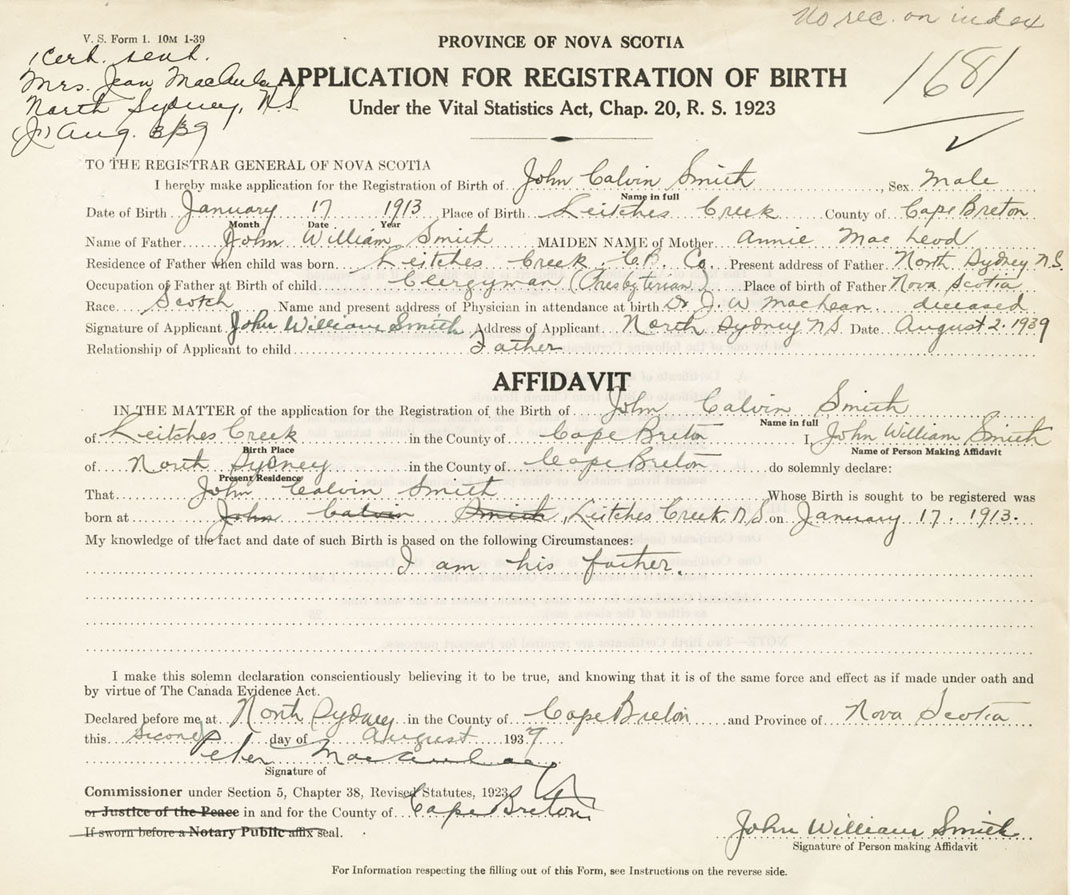 No rec. on index
V. S. Form 1. 10M 1-39
1 Cert. sent.
Mrs. Jean MacAulay
North Sydney, N.S.
Aug. 3/39
1681
PROVINCE OF NOVA SCOTIA
APPLICATION FOR REGISTRATION OF BIRTH
Under the Vital Statistics Act, Chap. 20, R. S. 1923
TO THE REGISTRAR GENERAL OF NOVA SCOTIA
I hereby make application for the Registration of Birth of John Calvin Smith, Sex Male
Name in full
Date of Birth January 17 1913 Place of Birth Leitches Creek County of Cape Breton
Month Date Year
Name of Father John William Smith MAIDEN NAME of Mother Annie MacLeod
Residence of Father when child was born Leitches Creek, C.B. Co. Present address of Father North Sydney N.S.
Occupation of Father at Birth of child Clergyman (Presbyterian) Place of birth of Father Nova Scotia
Race Scotch Name and present address of Physician in attendance at birth Dr J. W MacLean deceased
Signature of Applicant John William Smith Address of Applicant North Sydney N.S. Date August 2. 1939
Relationship of Applicant to child Father
AFFIDAVIT
IN THE MATTER of the application for the Registration of the Birth of John Calvin Smith
Name in full
of Leitches Creek in the County of Cape Breton I, John William Smith
Birth Place Name of Person Making Affidavit
of North Sydney in the County of Cape Breton do solemnly declare:
Present Residence
That John Calvin Smith Whose Birth is sought to be registered was
born at John Calvin Smith, Leitches Creek, N.S. on January 17. 1913.
My knowledge of the fact and date of such Birth is based on the following Circumstances:
I am his father.
I make this solemn declaration conscientiously believing it to be true, and knowing that it is of the same force and effect as if made under oath and
by virtue of The Canada Evidence Act.
Declared before me at North Sydney in the County of Cape Breton and Province of Nova Scotia
this second day of August 1939
Peter MacAulay
Signature of
Commissioner under Section 5, Chapter 38, Revised Statutes, 1923
or Justice of the Peace in and for the County of Cape Breton
If sworn before a Notary Public affix seal.
John William Smith
Signature of Person making Affidavit
For Information respecting the filling out of this Form, see Instructions on the reverse side.